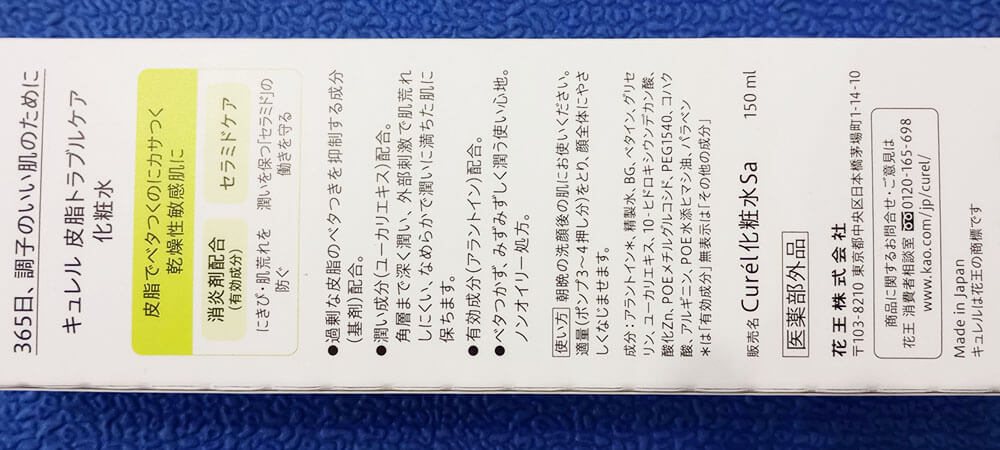 365日、調子のいい肌のために
キュレル 皮脂トラブルケア
化粧水
皮脂でベタつくのにカサつく
乾燥性敏感肌に
消炎剤配合
(有効成分)
にきび・肌荒れを
防ぐ
セラミドケア
潤いを保つ「セラミド」の
働きを守る
●過剰な皮脂のベタつきを抑制する成分
(基剤)配合。
●潤い成分(ユーカリエキス)配合。
角層まで深く潤い、外部刺激で肌荒れ
しにくい、なめらかで潤いに満ちた肌に
保ちます。
●有効成分(アラントイン)配合。
●ベタつかず、みずみずしく潤う使い心地。
ノンオイリー処方。
使い方 朝晩の洗顔後の肌にお使いください。
適量(ポンプ3〜4押し分)をとり、顔全体にやさ
しくなじませます。
成分:アラントイン*、精製水、BG、ベタイン、グリセ
リン、ユーカリエキス、10-ヒドロキシウンデカン酸、
酸化Zn、POEメチルグルコシド、PEG1540、コハク
酸、アルギニン、POE水添ヒマシ油、パラベン
*は「有効成分」無表示は「その他の成分」
販売名 Curel化粧水Sa 150 ml
医薬部外品
花王株式会社
〒103-8210 東京都中央区日本橋茅場町1-14-10
商品に関するお問合せ・ご意見は
花王 消費者相談室 0120-165-698
www.kao.com/jp/curel/
Made in Japan
キュレルは花王の商標です